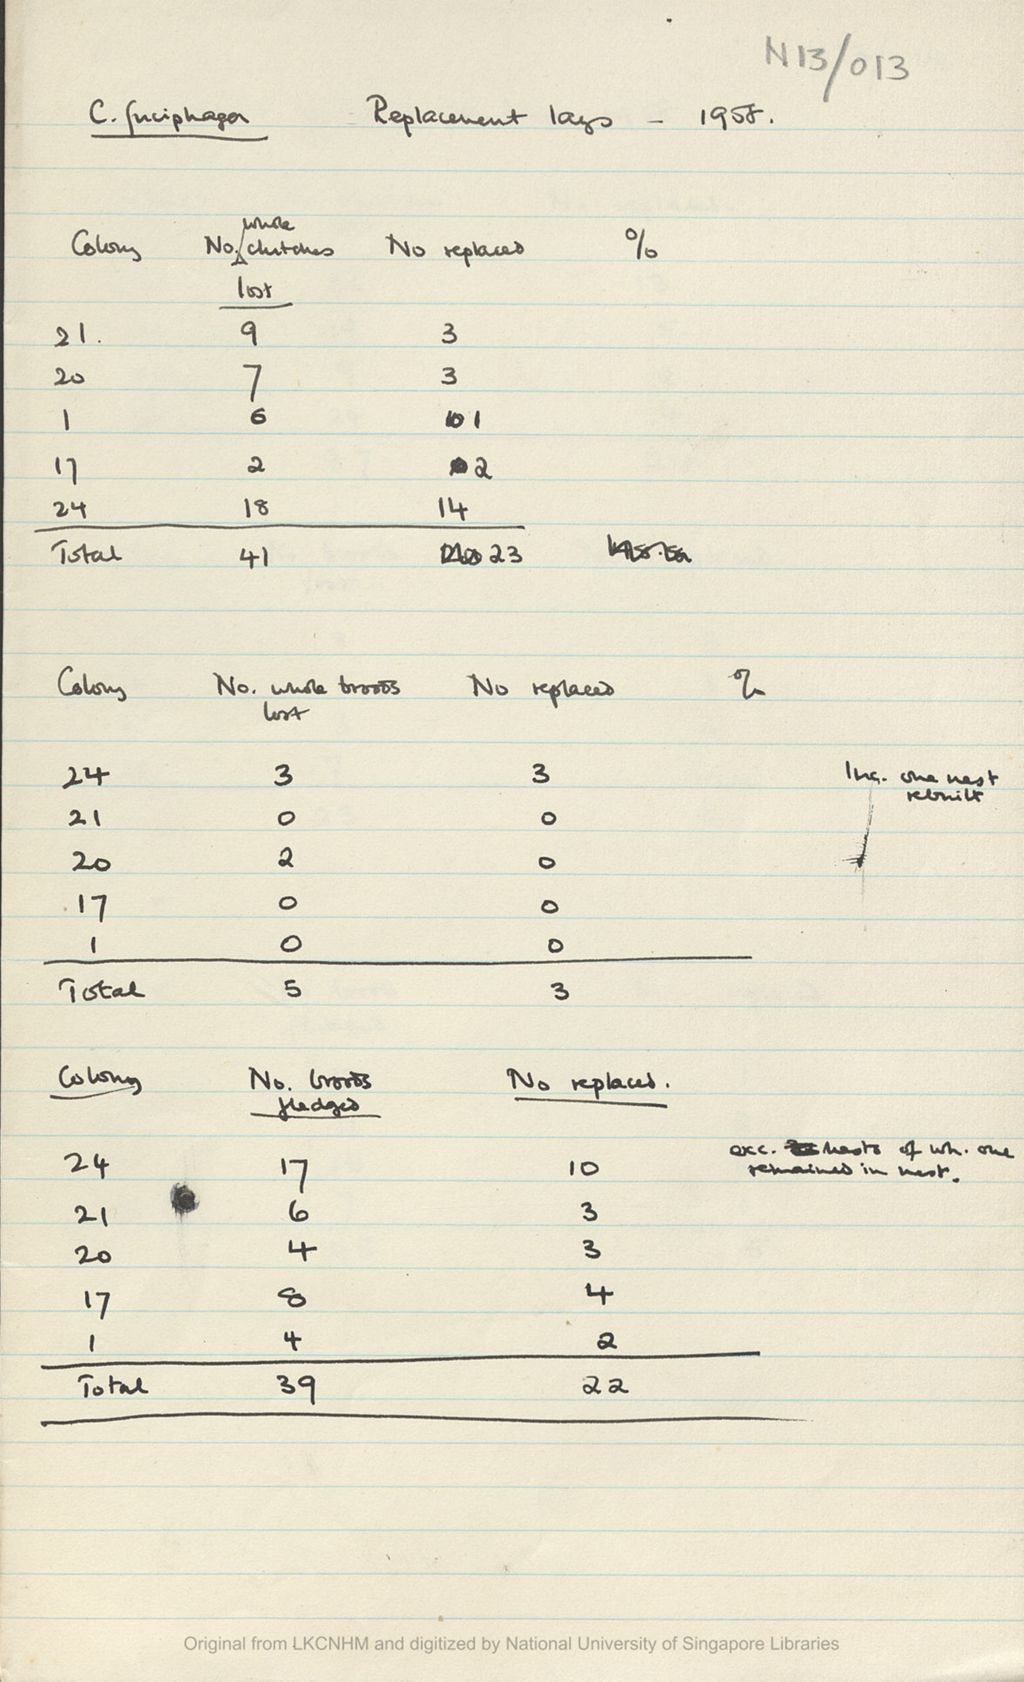 N13/013
C. fuciphaga Replacement lays – 1958.
Colony No. whole clutches lost No replaced %
21. 9 3
20 7 3
1 6 1
17 2 2
24 18 14
Total 41 23
Colony No. whole broods lost No replaced %
24 3 3 Inc. one nest rebuilt
21 0 0
20 2 0
17 0 0
1 0 0
Total 5 3
Colony No. broods fledged No replaced.
24 17 10 exc. nests of wh. one remained in nest.
21 6 3
20 4 3
17 8 4
1 4 2
Total 39 22
Original from LKCNHM and digitized by National University of Singapore Libraries